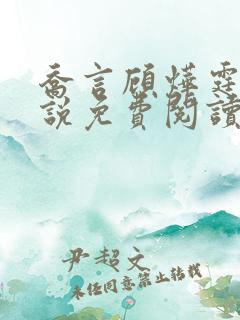 喬言顧燁霆
說免費閱讀
尹超文
未经同意禁止转载